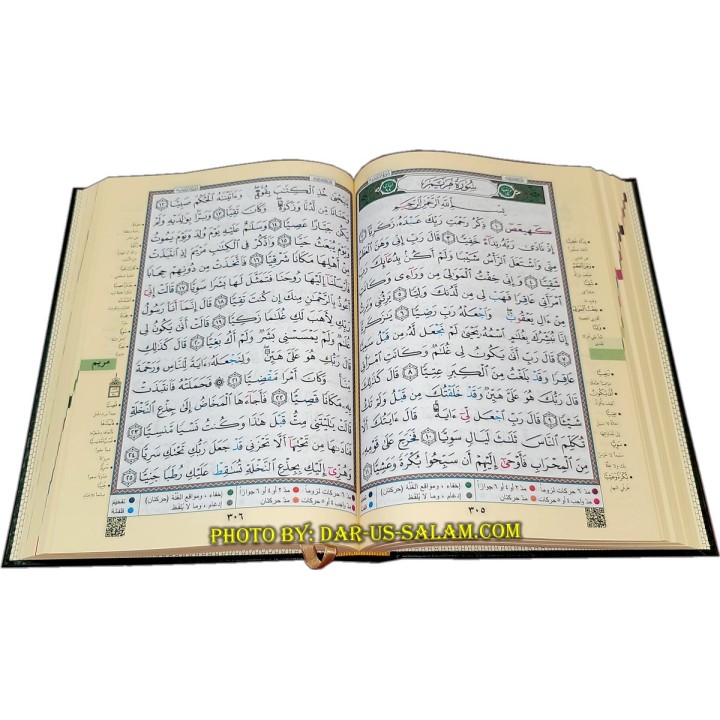 سُورَةُ مَرْيَمَ
بِسْمِ ٱللَّهِ ٱلرَّحْمَٰنِ ٱلرَّحِيمِ
كٓهيعٓصٓ ١ ذِكْرُ رَحْمَتِ رَبِّكَ عَبْدَهُۥ زَكَرِيَّآ ٢
إِذْ نَادَىٰ رَبَّهُۥ نِدَآءً خَفِيًّا ٣ قَالَ رَبِّ إِنِّى وَهَنَ ٱلْعَظْمُ
مِنِّى وَٱشْتَعَلَ ٱلرَّأْسُ شَيْبًا وَلَمْ أَكُنۢ بِدُعَآئِكَ رَبِّ
شَقِيًّا ٤ وَإِنِّى خِفْتُ ٱلْمَوَٰلِىَ مِن وَرَآءِى وَكَانَتِ
ٱمْرَأَتِى عَاقِرًا فَهَبْ لِى مِن لَّدُنكَ وَلِيًّا ٥ يَرِثُنِى وَيَرِثُ
مِنْ ءَالِ يَعْقُوبَ ۖ وَٱجْعَلْهُ رَبِّ رَضِيًّا ٦ يَٰزَكَرِيَّآ
إِنَّا نُبَشِّرُكَ بِغُلَٰمٍ ٱسْمُهُۥ يَحْيَىٰ لَمْ نَجْعَل لَّهُۥ مِن قَبْلُ سَمِيًّا
٧ قَالَ رَبِّ أَنَّىٰ يَكُونُ لِى غُلَٰمٌ وَكَانَتِ ٱمْرَأَتِى
عَاقِرًا وَقَدْ بَلَغْتُ مِنَ ٱلْكِبَرِ عِتِيًّا ٨ قَالَ كَذَٰلِكَ
قَالَ رَبُّكَ هُوَ عَلَىَّ هَيِّنٌ وَقَدْ خَلَقْتُكَ مِن قَبْلُ وَلَمْ تَكُ
شَيْـًٔا ٩ قَالَ رَبِّ ٱجْعَل لِّىٓ ءَايَةً ۚ قَالَ ءَايَتُكَ أَلَّا
تُكَلِّمَ ٱلنَّاسَ ثَلَٰثَ لَيَالٍ سَوِيًّا ١٠ فَخَرَجَ عَلَىٰ قَوْمِهِۦ
مِنَ ٱلْمِحْرَابِ فَأَوْحَىٰٓ إِلَيْهِمْ أَن سَبِّحُوا۟ بُكْرَةً وَعَشِيًّا ١١
مدّ ٦ حركات لزوماً مدّ ٢ أو ٤ أو ٦ جوازاً إخفاء ، ومواقع الغُنَّة (حركتان) تفخيم
مدّ واجب ٤ أو ٥ حركات مدّ حركتان إدغام ، وما لا يُلفَظ قلقلة
٣٠٥
يَٰيَحْيَىٰ خُذِ ٱلْكِتَٰبَ بِقُوَّةٍ ۖ وَءَاتَيْنَٰهُ ٱلْحُكْمَ صَبِيًّا ١٢
وَحَنَانًا مِّن لَّدُنَّا وَزَكَوٰةً ۖ وَكَانَ تَقِيًّا ١٣ وَبَرًّۢا بِوَٰلِدَيْهِ وَلَمْ
يَكُن جَبَّارًا عَصِيًّا ١٤ وَسَلَٰمٌ عَلَيْهِ يَوْمَ وُلِدَ وَيَوْمَ يَمُوتُ
وَيَوْمَ يُبْعَثُ حَيًّا ١٥ وَٱذْكُرْ فِى ٱلْكِتَٰبِ مَرْيَمَ إِذِ ٱنتَبَذَتْ
مِنْ أَهْلِهَا مَكَانًا شَرْقِيًّا ١٦ فَٱتَّخَذَتْ مِن دُونِهِمْ حِجَابًا
فَأَرْسَلْنَآ إِلَيْهَا رُوحَنَا فَتَمَثَّلَ لَهَا بَشَرًا سَوِيًّا ١٧ قَالَتْ إِنِّىٓ
أَعُوذُ بِٱلرَّحْمَٰنِ مِنكَ إِن كُنتَ تَقِيًّا ١٨ قَالَ إِنَّمَآ أَنَا۠ رَسُولُ
رَبِّكِ لِأَهَبَ لَكِ غُلَٰمًا زَكِيًّا ١٩ قَالَتْ أَنَّىٰ يَكُونُ لِى
غُلَٰمٌ وَلَمْ يَمْسَسْنِى بَشَرٌ وَلَمْ أَكُ بَغِيًّا ٢٠ قَالَ كَذَٰلِكِ
قَالَ رَبُّكِ هُوَ عَلَىَّ هَيِّنٌ ۖ وَلِنَجْعَلَهُۥٓ ءَايَةً لِّلنَّاسِ وَرَحْمَةً
مِّنَّا ۚ وَكَانَ أَمْرًا مَّقْضِيًّا ٢١ ۞ فَحَمَلَتْهُ فَٱنتَبَذَتْ
بِهِۦ مَكَانًا قَصِيًّا ٢٢ فَأَجَآءَهَا ٱلْمَخَاضُ إِلَىٰ جِذْعِ ٱلنَّخْلَةِ
قَالَتْ يَٰلَيْتَنِى مِتُّ قَبْلَ هَٰذَا وَكُنتُ نَسْيًا مَّنسِيًّا ٢٣
فَنَادَىٰهَا مِن تَحْتِهَآ أَلَّا تَحْزَنِى قَدْ جَعَلَ رَبُّكِ تَحْتَكِ سَرِيًّا ٢٤
وَهُزِّىٓ إِلَيْكِ بِجِذْعِ ٱلنَّخْلَةِ تُسَٰقِطْ عَلَيْكِ رُطَبًا جَنِيًّا ٢٥
مدّ ٦ حركات لزوماً مدّ ٢ أو ٤ أو ٦ جوازاً إخفاء ، ومواقع الغُنَّة (حركتان) تفخيم
مدّ واجب ٤ أو ٥ حركات مدّ حركتان إدغام ، وما لا يُلفَظ قلقلة
٣٠٦
مريم
PHOTO BY: DAR-US-SALAM.COM